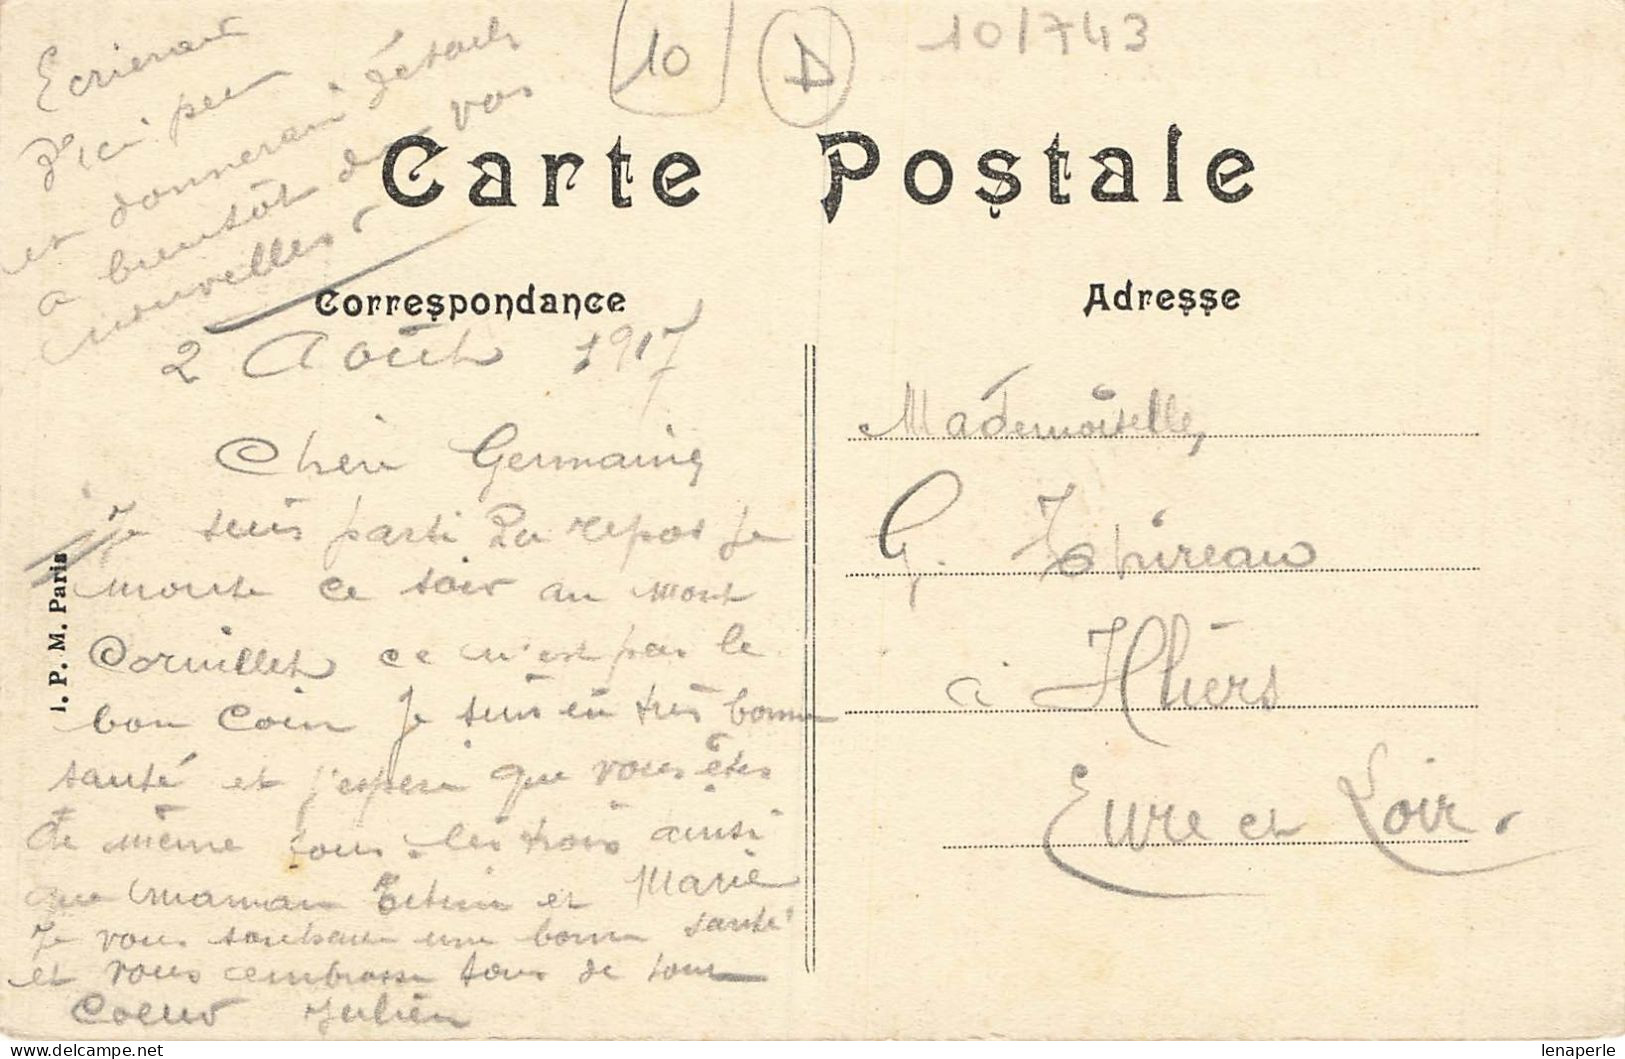 10 D 10/743
Ecrierai
d'ici peu
et donnerai détails
a bientôt de vos
nouvelles
Carte Postale
Correspondance
Adresse
2 Août 1917
Chère Germaine
Je suis parti du repos Je
monte ce soir au mont
Cornillet ce n'est pas le
bon coin Je suis en très bonne
santé et j'espère que vous êtes
de même tous les trois ainsi
que maman et Marie
Je vous souhaite une bonne santé
et vous embrasse tous de tout
Coeur Julien
I. P. M. Paris
Mademoiselle,
G.
à Illiers
Eure et Loir.
delcampe.net
lenaperle